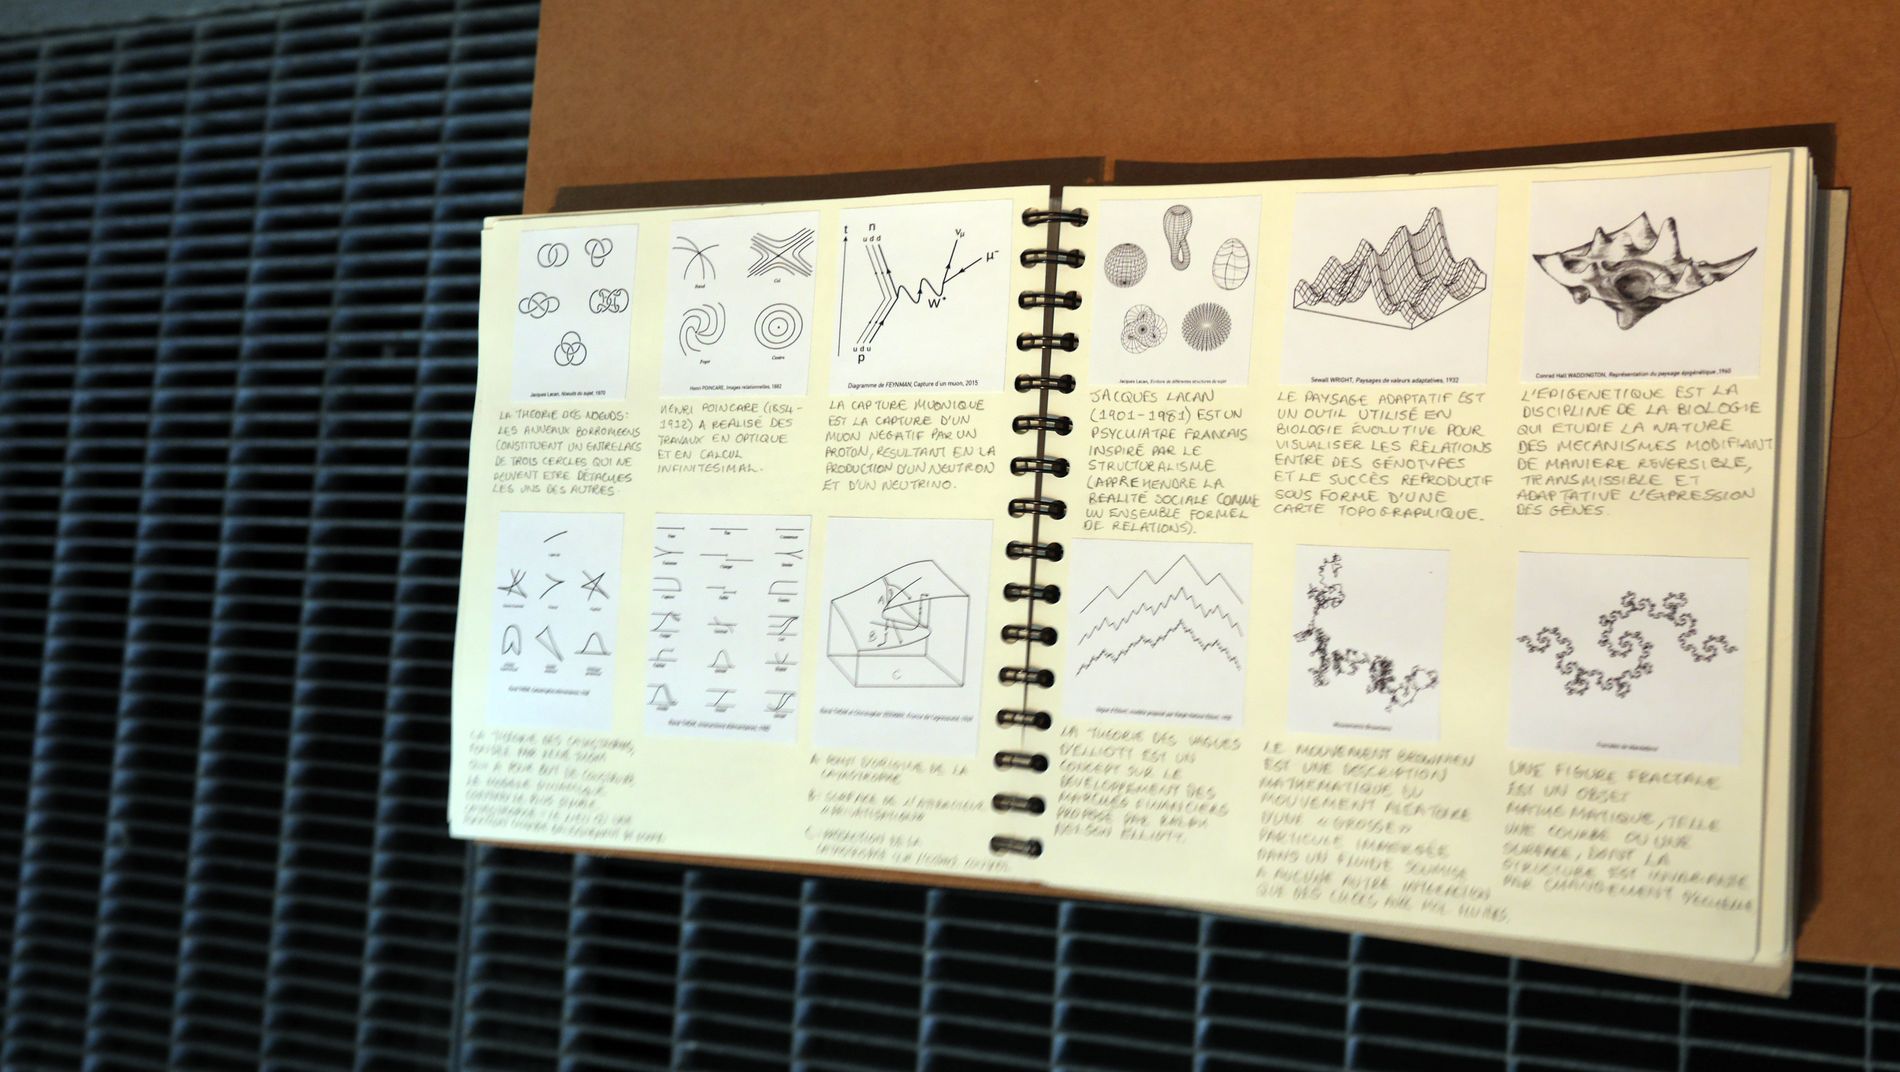 Jacques Lacan, Nœuds du sujet, 1970
LA THEORIE DES NOEUDS:
LES ANNEAUX BORROMEENS
CONSTITUENT UN ENTRELACS
DE TROIS CERCLES QUI NE
PEUVENT ETRE DETACHES
LES UNS DES AUTRES.
Nœud
Col
Foyer
Centre
Henri POINCARE, Images relationnelles, 1882
HENRI POINCARE (1854-
1912) A REALISÉ DES
TRAVAUX EN OPTIQUE
ET EN CALCUL
INFINITESIMAL.
t
n
u d d
Vμ
μ-
W+
u d u
p
Diagramme de FEYNMAN, Capture d'un muon, 2015
LA CAPTURE MUONIQUE
EST LA CAPTURE D'UN
MUON NEGATIF PAR UN
PROTON, RESULTANT EN LA
PRODUCTION D'UN NEUTRON
ET D'UN NEUTRINO.
LA THEORIE DES CATASTROPHES,
FONDÉE PAR RENÉ THOM
QUI A POUR BUT DE CONSTRUIRE
LE MODELE DYNAMIQUE
CONTINU LE PLUS SIMPLE
A
B
C
A POINT D'ORIGINE DE LA
CATASTROPHE
B: SURFACE DE
C: PROJECTION DE LA
CATASTROPHE SUR
Jacques Lacan, Écriture de différentes structures du sujet
JACQUES LACAN
(1901-1981) EST UN
PSYCHIATRE FRANCAIS
INSPIRÉ PAR LE
STRUCTURALISME
(APPREHENDRE LA
REALITÉ SOCIALE COMME
UN ENSEMBLE FORMEL
DE RELATIONS).
Sewall WRIGHT, Paysages de valeurs adaptatives, 1932
LE PAYSAGE ADAPTATIF EST
UN OUTIL UTILISÉ EN
BIOLOGIE ÉVOLUTIVE POUR
VISUALISER LES RELATIONS
ENTRE DES GÉNOTYPES
ET LE SUCCÈS REPRODUCTIF
SOUS FORME D'UNE
CARTE TOPOGRAPHIQUE.
Conrad Hall WADDINGTON, Représentation du paysage épigénétique, 1960
L'EPIGENETIQUE EST LA
DISCIPLINE DE LA BIOLOGIE
QUI ETUDIE LA NATURE
DES MECANISMES MODIFIANT
DE MANIERE REVERSIBLE,
TRANSMISSIBLE ET
ADAPTATIVE L'EXPRESSION
DES GÈNES.
LA THEORIE DES VAGUES
D'ELLIOTT EST UN
CONCEPT SUR LE
DEVELOPPEMENT DES
MARCHÉS FINANCIERS
PROPOSÉ PAR RALPH
NELSON ELLIOTT.
Mouvements Browniens
LE MOUVEMENT BROWNIEN
EST UNE DESCRIPTION
MATHEMATIQUE DU
MOUVEMENT ALEATOIRE
D'UNE «GROSSE»
PARTICULE IMMERGÉE
DANS UN FLUIDE SOUMISE
A AUCUNE AUTRE INTERACTION
QUE DES CHOCS AVEC
Fractales de Mandelbrot
UNE FIGURE FRACTALE
EST UN OBJET
MATHEMATIQUE, TELLE
UNE COURBE OU UNE
SURFACE, DONT LA
STRUCTURE EST INVARIANTE
PAR CHANGEMENT D'ECHELLE